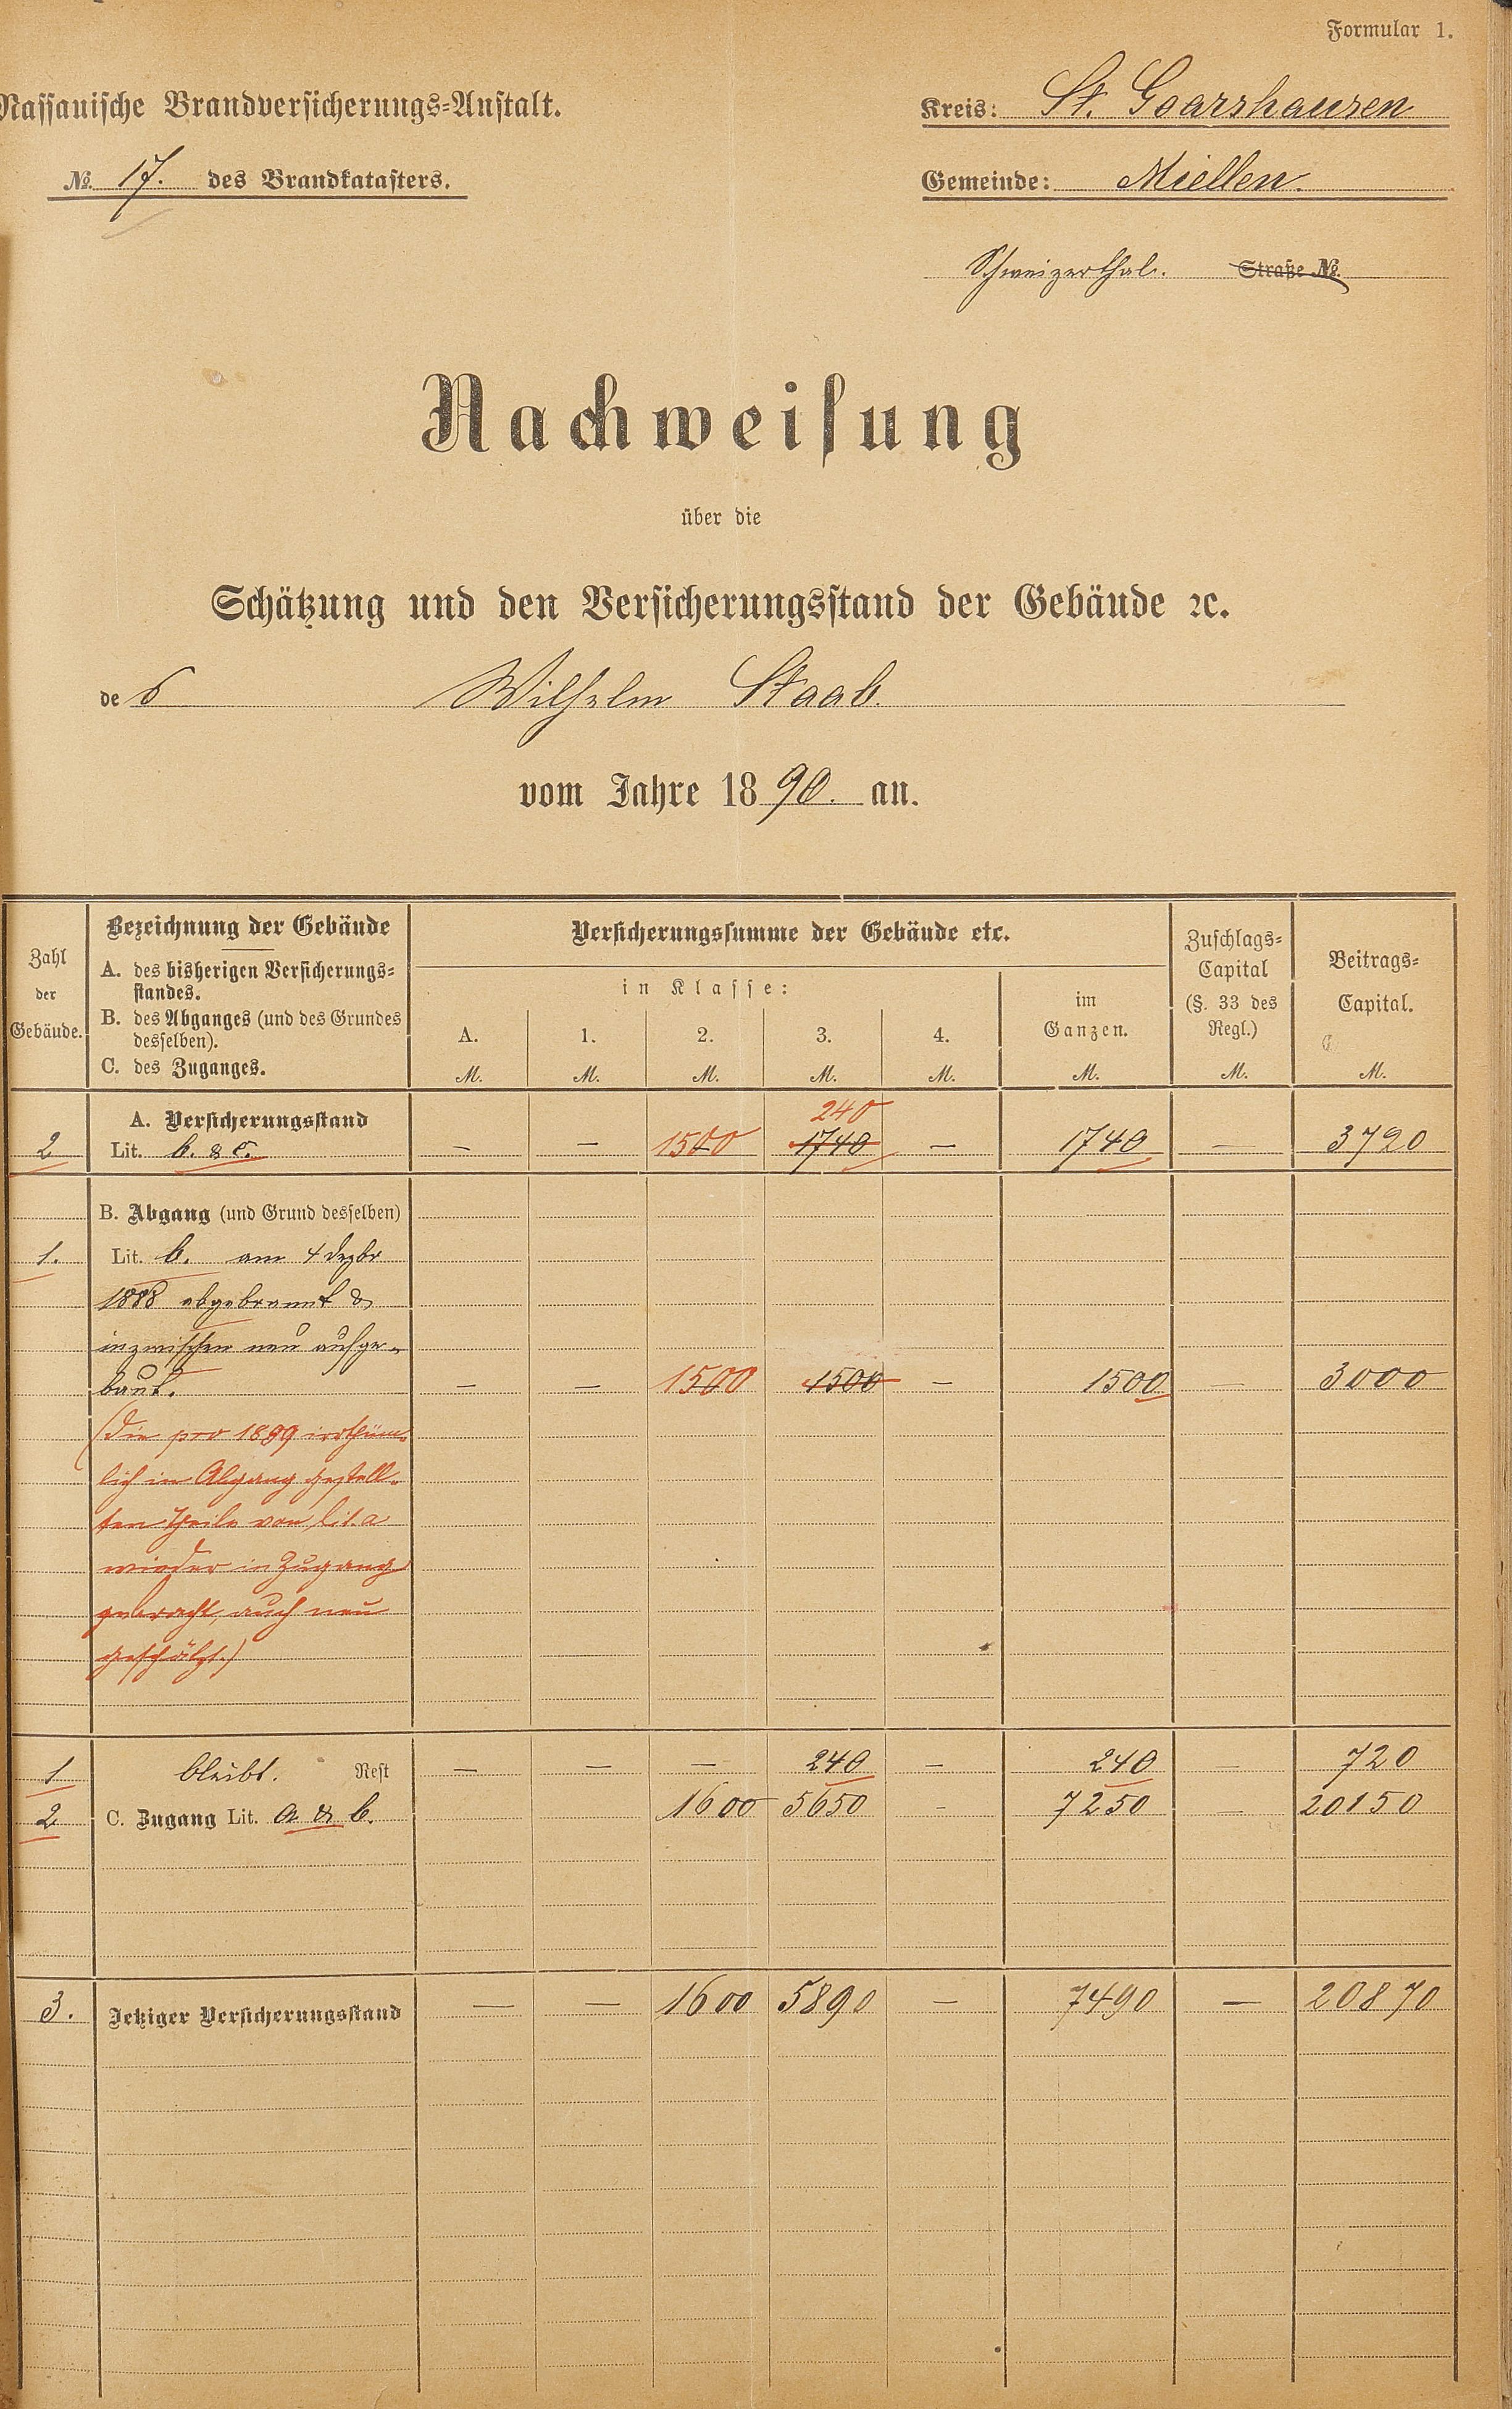 Formular 1.
Nassauische Brandversicherungs-Anstalt.
Kreis: St. Goarshausen
No. 17. des Brandkatasters.
Gemeinde: Miellen.
Schweizerthal. Straße No.
Nachweisung
über die
Schätzung und den Versicherungsstand der Gebäude ꝛc.
des Wilhelm Staab.
vom Jahre 1890. an.
Zahl der Gebäude.
Bezeichnung der Gebäude
A. des bisherigen Versicherungs-
standes.
B. des Abganges (und des Grundes
desselben).
C. des Zuganges.
Versicherungssumme der Gebäude etc.
in Klasse:
A. 1. 2. 3. 4.
im Ganzen.
Zuschlags-
Capital
(§. 33 des
Regl.)
Beitrags-
Capital.
M. M. M. M. M. M. M. M.
A. Versicherungsstand 240
2 Lit. b. & c. — — 1500 1740 — 1740 — 3720
B. Abgang (und Grund desselben)
1. Lit. b. am 4 Dezbr
1888 abgebrannt &
inzwischen neu aufge-
baut. — — 1500 1500 — 1500 — 3000
(Die pro 1889 irrthüm-
lich in Abgang gestell-
ten Theile von lit. a
wieder in Zugang
gebracht, auch neu
geschätzt.)
1 bleibt. Rest — — — 240 — 240 — 720
2 C. Zugang Lit. a & b. 1600 5650 - 7250 — 20150
3. Jetziger Versicherungsstand — — 1600 5890 — 7490 — 20870